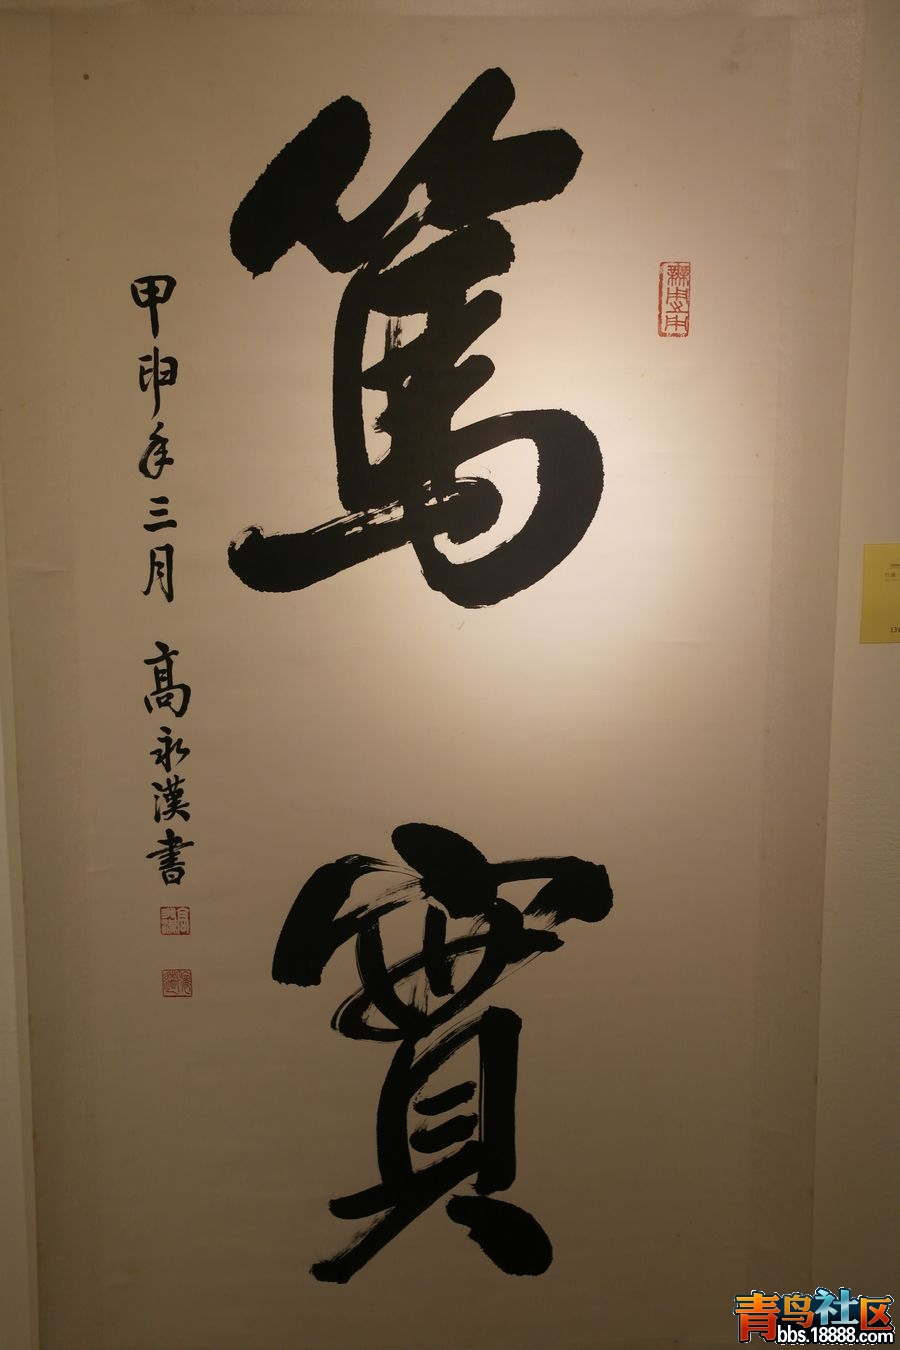 篤
實
甲申年三月 高永漢書
青鸟社区
bbs.18888.com